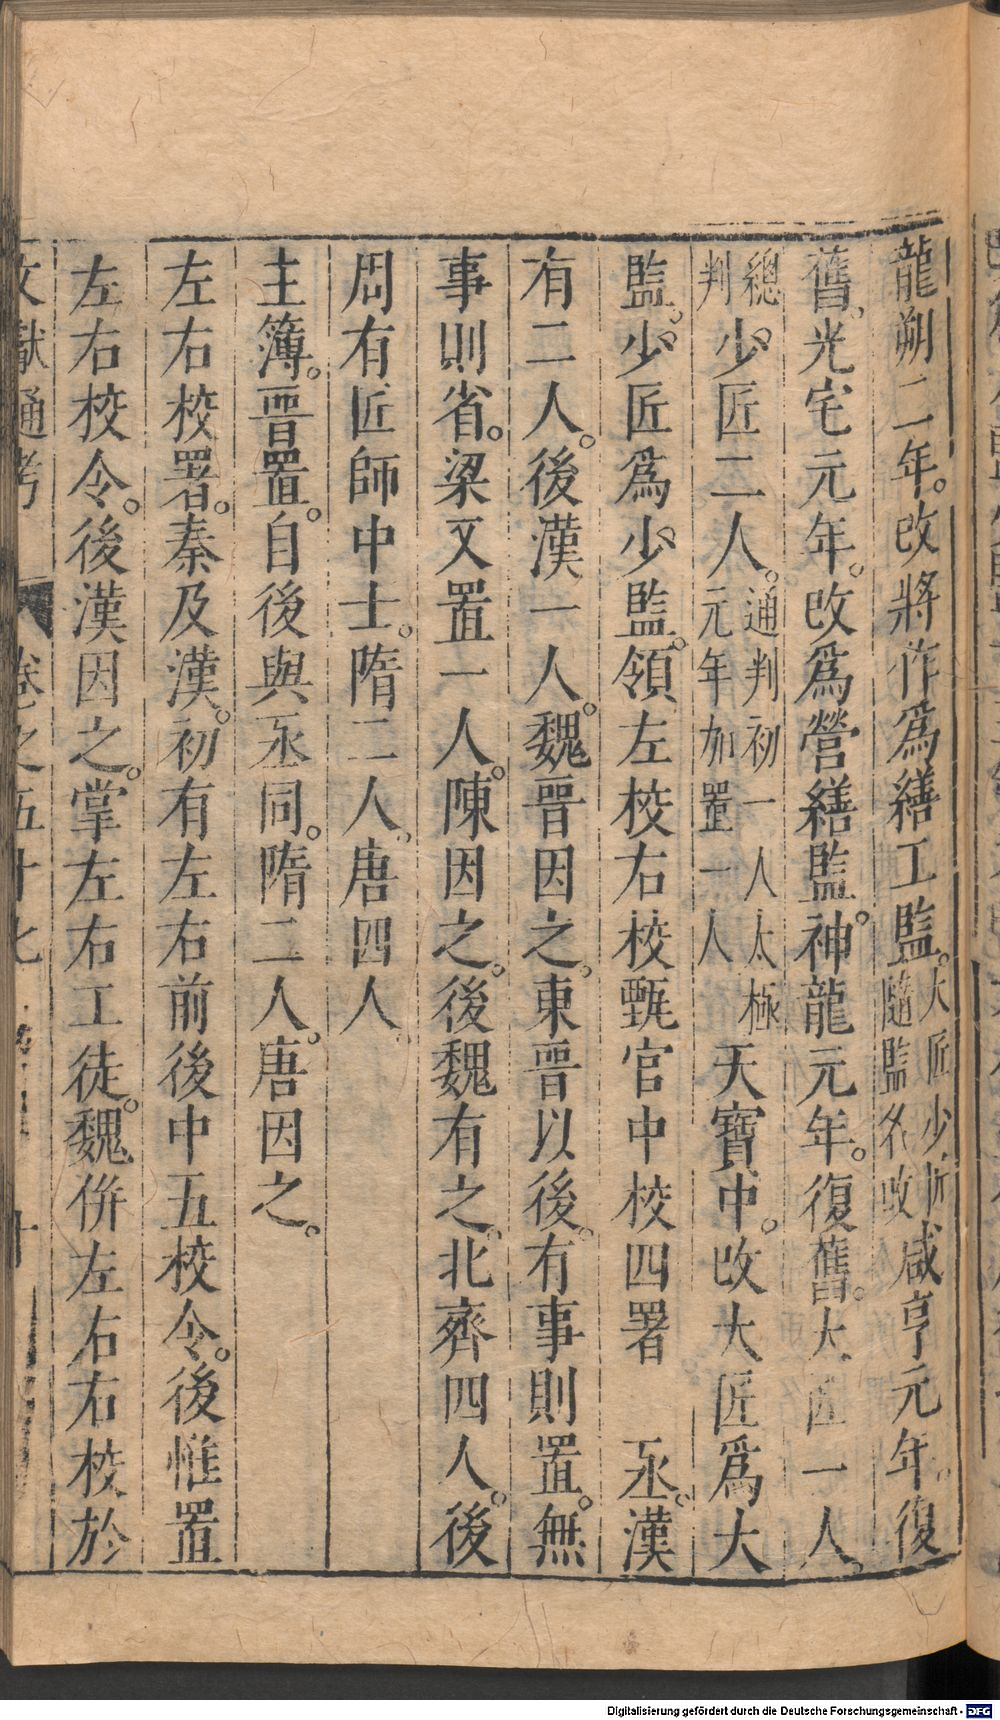 龍朔二年。改將作爲繕工監。大匠少匠隨監名改咸亨元年。復
舊。光宅元年。改爲營繕監。神龍元年。復舊。大匠一人。
總判少匠二人。通判初一人太極元年加置一人天寶中。改大匠爲大
監。少匠爲少監。領左校右校甄官中校四署　丞。漢
有二人。後漢一人。魏晉因之。東晉以後。有事則置。無
事則省。梁又置一人。陳因之。後魏有之。北齊四人。後
周有匠師中士。隋二人。唐四人。
主簿。晉置。自後與丞同。隋二人。唐因之。
左右校署。秦及漢。初有左右前後中五校令。後惟置
左右校令。後漢因之。掌左右工徒。魏併左右校於
文獻通考　卷之五十七　十
Digitalisierung gefördert durch die Deutsche Forschungsgemeinschaft - DFG